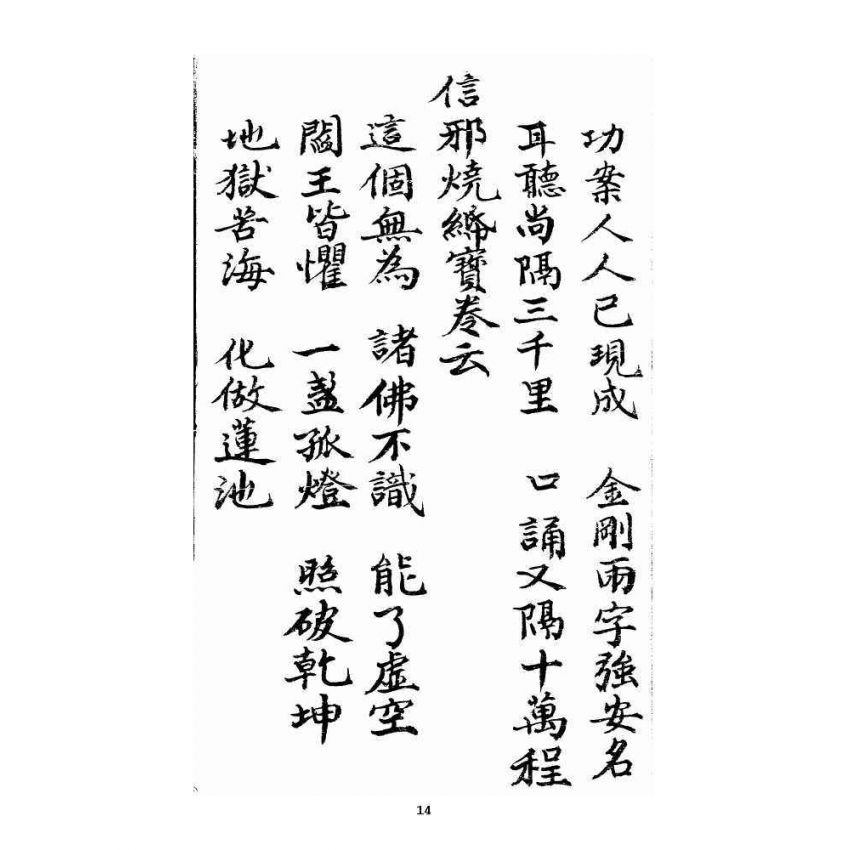 功案人人已現成　金剛兩字強安名
耳聽尚隔三千里　口誦又隔十萬程
信邪燒綿寶卷云
這個無為　諸佛不識　能了虛空
閻王皆懼　一盞孤燈　照破乾坤
地獄苦海　化做蓮池
14